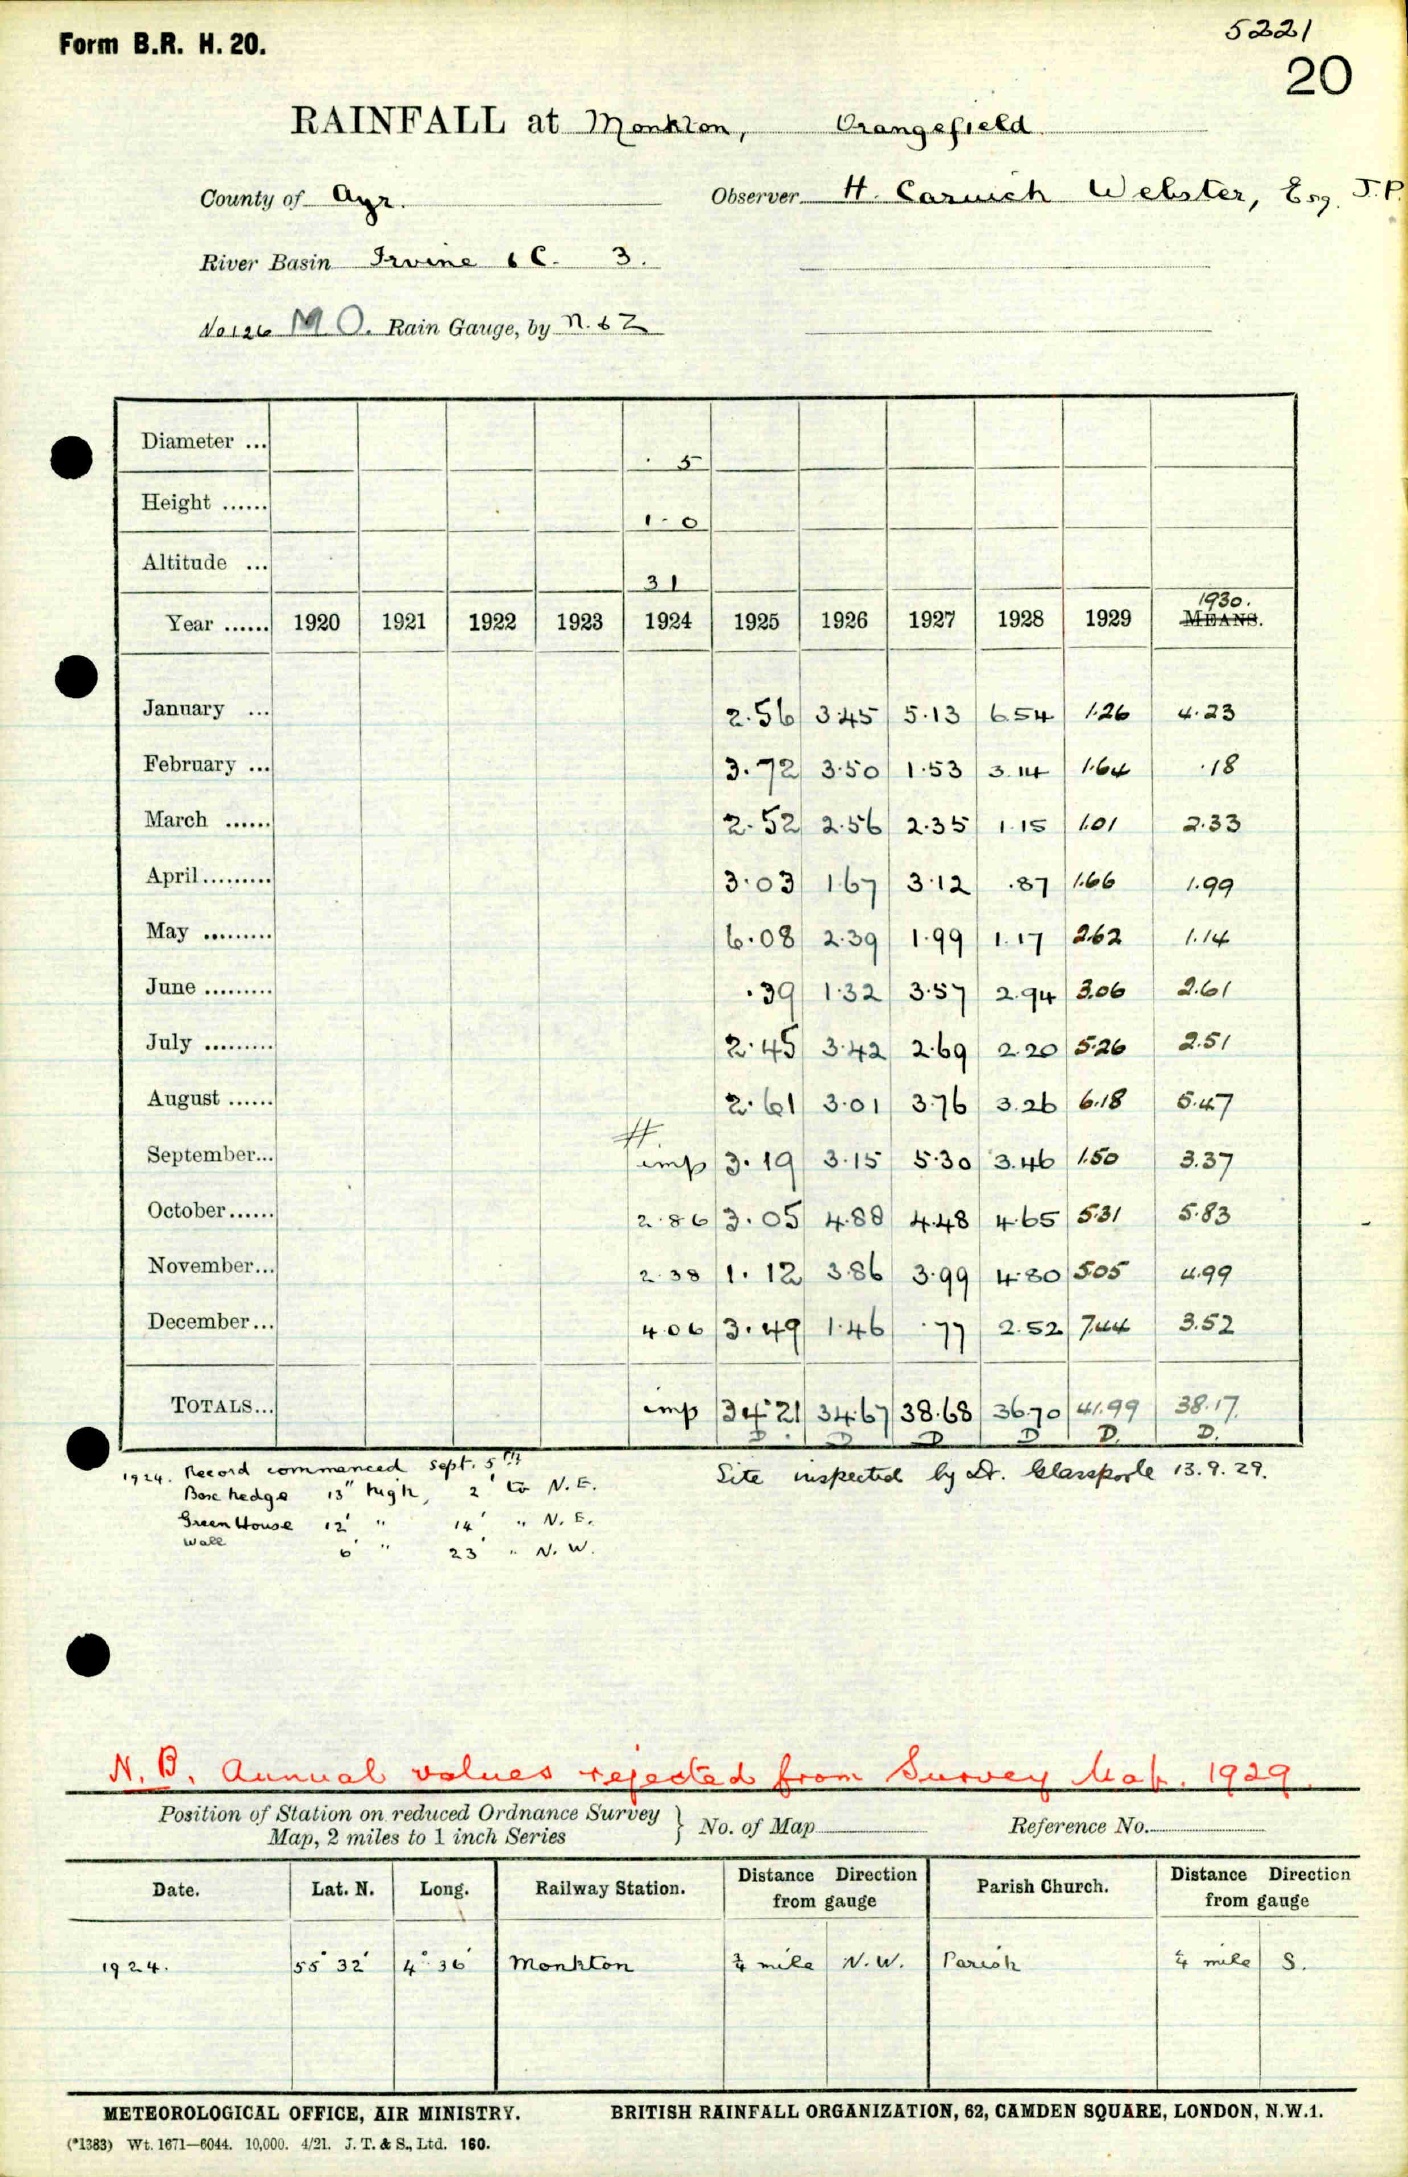 5221
Form B.R. H. 20.
20
RAINFALL at Monkton, Orangefield
County of Ayr. Observer H. Carwich Webster, Esq. J.P.
River Basin Irvine & C. 3.
No 126 M O. Rain Gauge, by N. & Z
Diameter ... 5
Height ...... 1 - 0
Altitude ... 31
1930.
Year ...... 1920 1921 1922 1923 1924 1925 1926 1927 1928 1929 MEANS.
January ... 2.56 3.45 5.13 6.54 1.26 4.23
February ... 3.72 3.50 1.53 3.14 1.64 .18
March ...... 2.52 2.56 2.35 1.15 1.01 2.33
April ......... 3.03 1.67 3.12 .87 1.66 1.99
May ......... 6.08 2.39 1.99 1.17 2.62 1.14
June ......... .39 1.32 3.57 2.94 3.06 2.61
July ......... 2.45 3.42 2.69 2.20 5.26 2.51
August ...... 2.61 3.01 3.76 3.26 6.18 5.47
#
September... imp 3.19 3.15 5.30 3.46 1.50 3.37
October ...... 2.86 3.05 4.88 4.48 4.65 5.31 5.83
November... 2.38 1.12 3.86 3.99 4.80 5.05 4.99
December... 4.06 3.49 1.46 .77 2.52 7.44 3.52
TOTALS... imp 34.21 34.67 38.68 36.70 41.99 38.17.
D. D D D D. D.
1924. Record commenced Sept. 5th
Box hedge 13" high, 2' to N.E.
Green House 12' " 14' " N.E.
Wall 6' " 23' " N.W.
Site inspected by Dr. Glasspoole 13.9.29.
N.B. Annual values rejected from Survey Map. 1929.
Position of Station on reduced Ordnance Survey
Map, 2 miles to 1 inch Series } No. of Map Reference No.
Date. Lat. N. Long. Railway Station. Distance Direction from gauge Parish Church. Distance Direction from gauge
1924. 55° 32' 4° 36' Monkton 3/4 mile N.W. Parish mile S.
METEOROLOGICAL OFFICE, AIR MINISTRY. BRITISH RAINFALL ORGANIZATION, 62, CAMDEN SQUARE, LONDON, N.W.1.
(*1383) Wt. 1671—6044. 10,000. 4/21. J. T. & S., Ltd. 160.